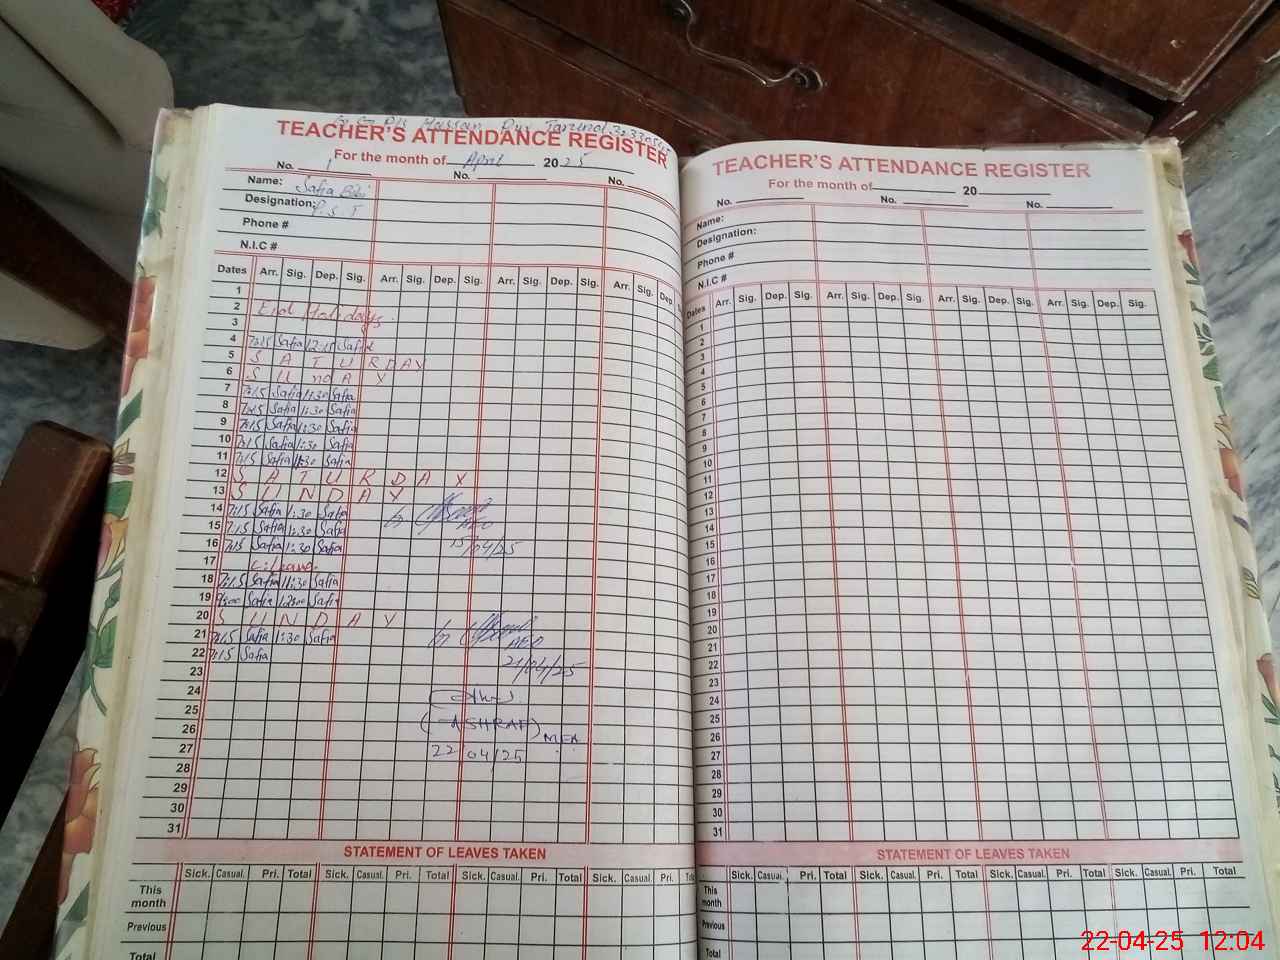 TEACHER'S ATTENDANCE REGISTER
For the month of April 2025
No. 1 No. No.
Name: Safia Bibi
Designation: P.S.T
Phone #
N.I.C #
Dates Arr. Sig. Dep. Sig. Arr. Sig. Dep. Sig. Arr. Sig. Dep. Sig. Arr. Sig. Dep.
1
2 Eid Holidays.
3
4 7:15 Safia 12:15 Safia
5 SATURDAY
6 SUNDAY
7 7:15 Safia 1:30 Safia
8 7:15 Safia 1:30 Safia
9 7:15 Safia 1:30 Safia
10 7:15 Safia 1:30 Safia
11 7:15 Safia 11:30 Safia
12 SATURDAY
13 SUNDAY
14 7:15 Safia 1:30 Safia
15 7:15 Safia 1:30 Safia AEO
16 7:15 Safia 1:30 Safia 15/04/25
17 C.Leave.
18 7:15 Safia 11:30 Safia
19 9:00 Safia 12:00 Safia
20 SUNDAY
21 7:15 Safia 1:30 Safia AEO
22 7:15 Safia 21/04/25
23
24
25 (ASHRAF)
26 MEA
27 22/04/25
28
29
30
31
STATEMENT OF LEAVES TAKEN
Sick. Casual. Pri. Total Sick. Casual. Pri. Total Sick. Casual. Pri. Total Sick. Casual. Pri.
This month
Previous
Total
TEACHER'S ATTENDANCE REGISTER
For the month of 20
No. No. No.
Name:
Designation:
Phone #
N.I.C #
Dates Arr. Sig. Dep. Sig. Arr. Sig. Dep. Sig. Arr. Sig. Dep. Sig. Arr. Sig. Dep. Sig.
1
2
3
4
5
6
7
8
9
10
11
12
13
14
15
16
17
18
19
20
21
22
23
24
25
26
27
28
29
30
31
STATEMENT OF LEAVES TAKEN
Sick. Casual. Pri. Total Sick. Casual. Pri. Total Sick. Casual. Pri. Total Sick. Casual. Pri. Total
This month
Previous
Total
22-04-25 12:04